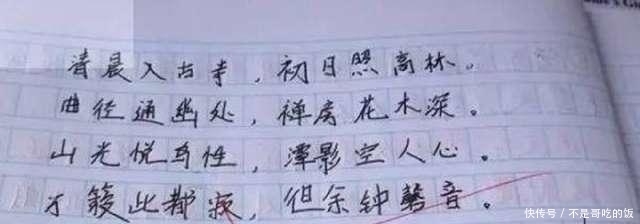 清晨入古寺，初日照高林。
曲径通幽处，禅房花木深。
山光悦鸟性，潭影空人心。
万籁此都寂，但余钟磬音。
快传号／不是哥吃的饭